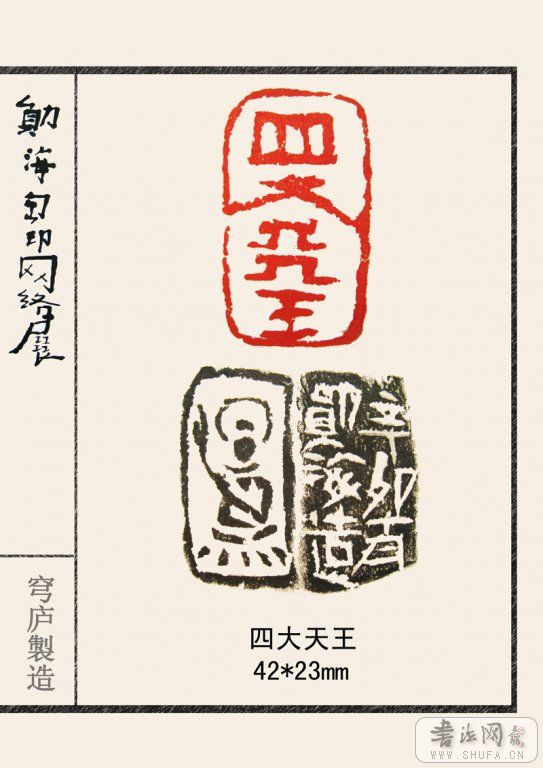 勛海匋印网络展
四大天王
辛卯首
勛海造
四大天王
42*23mm
穹庐製造
書法网
WWW.SHUFA.CN